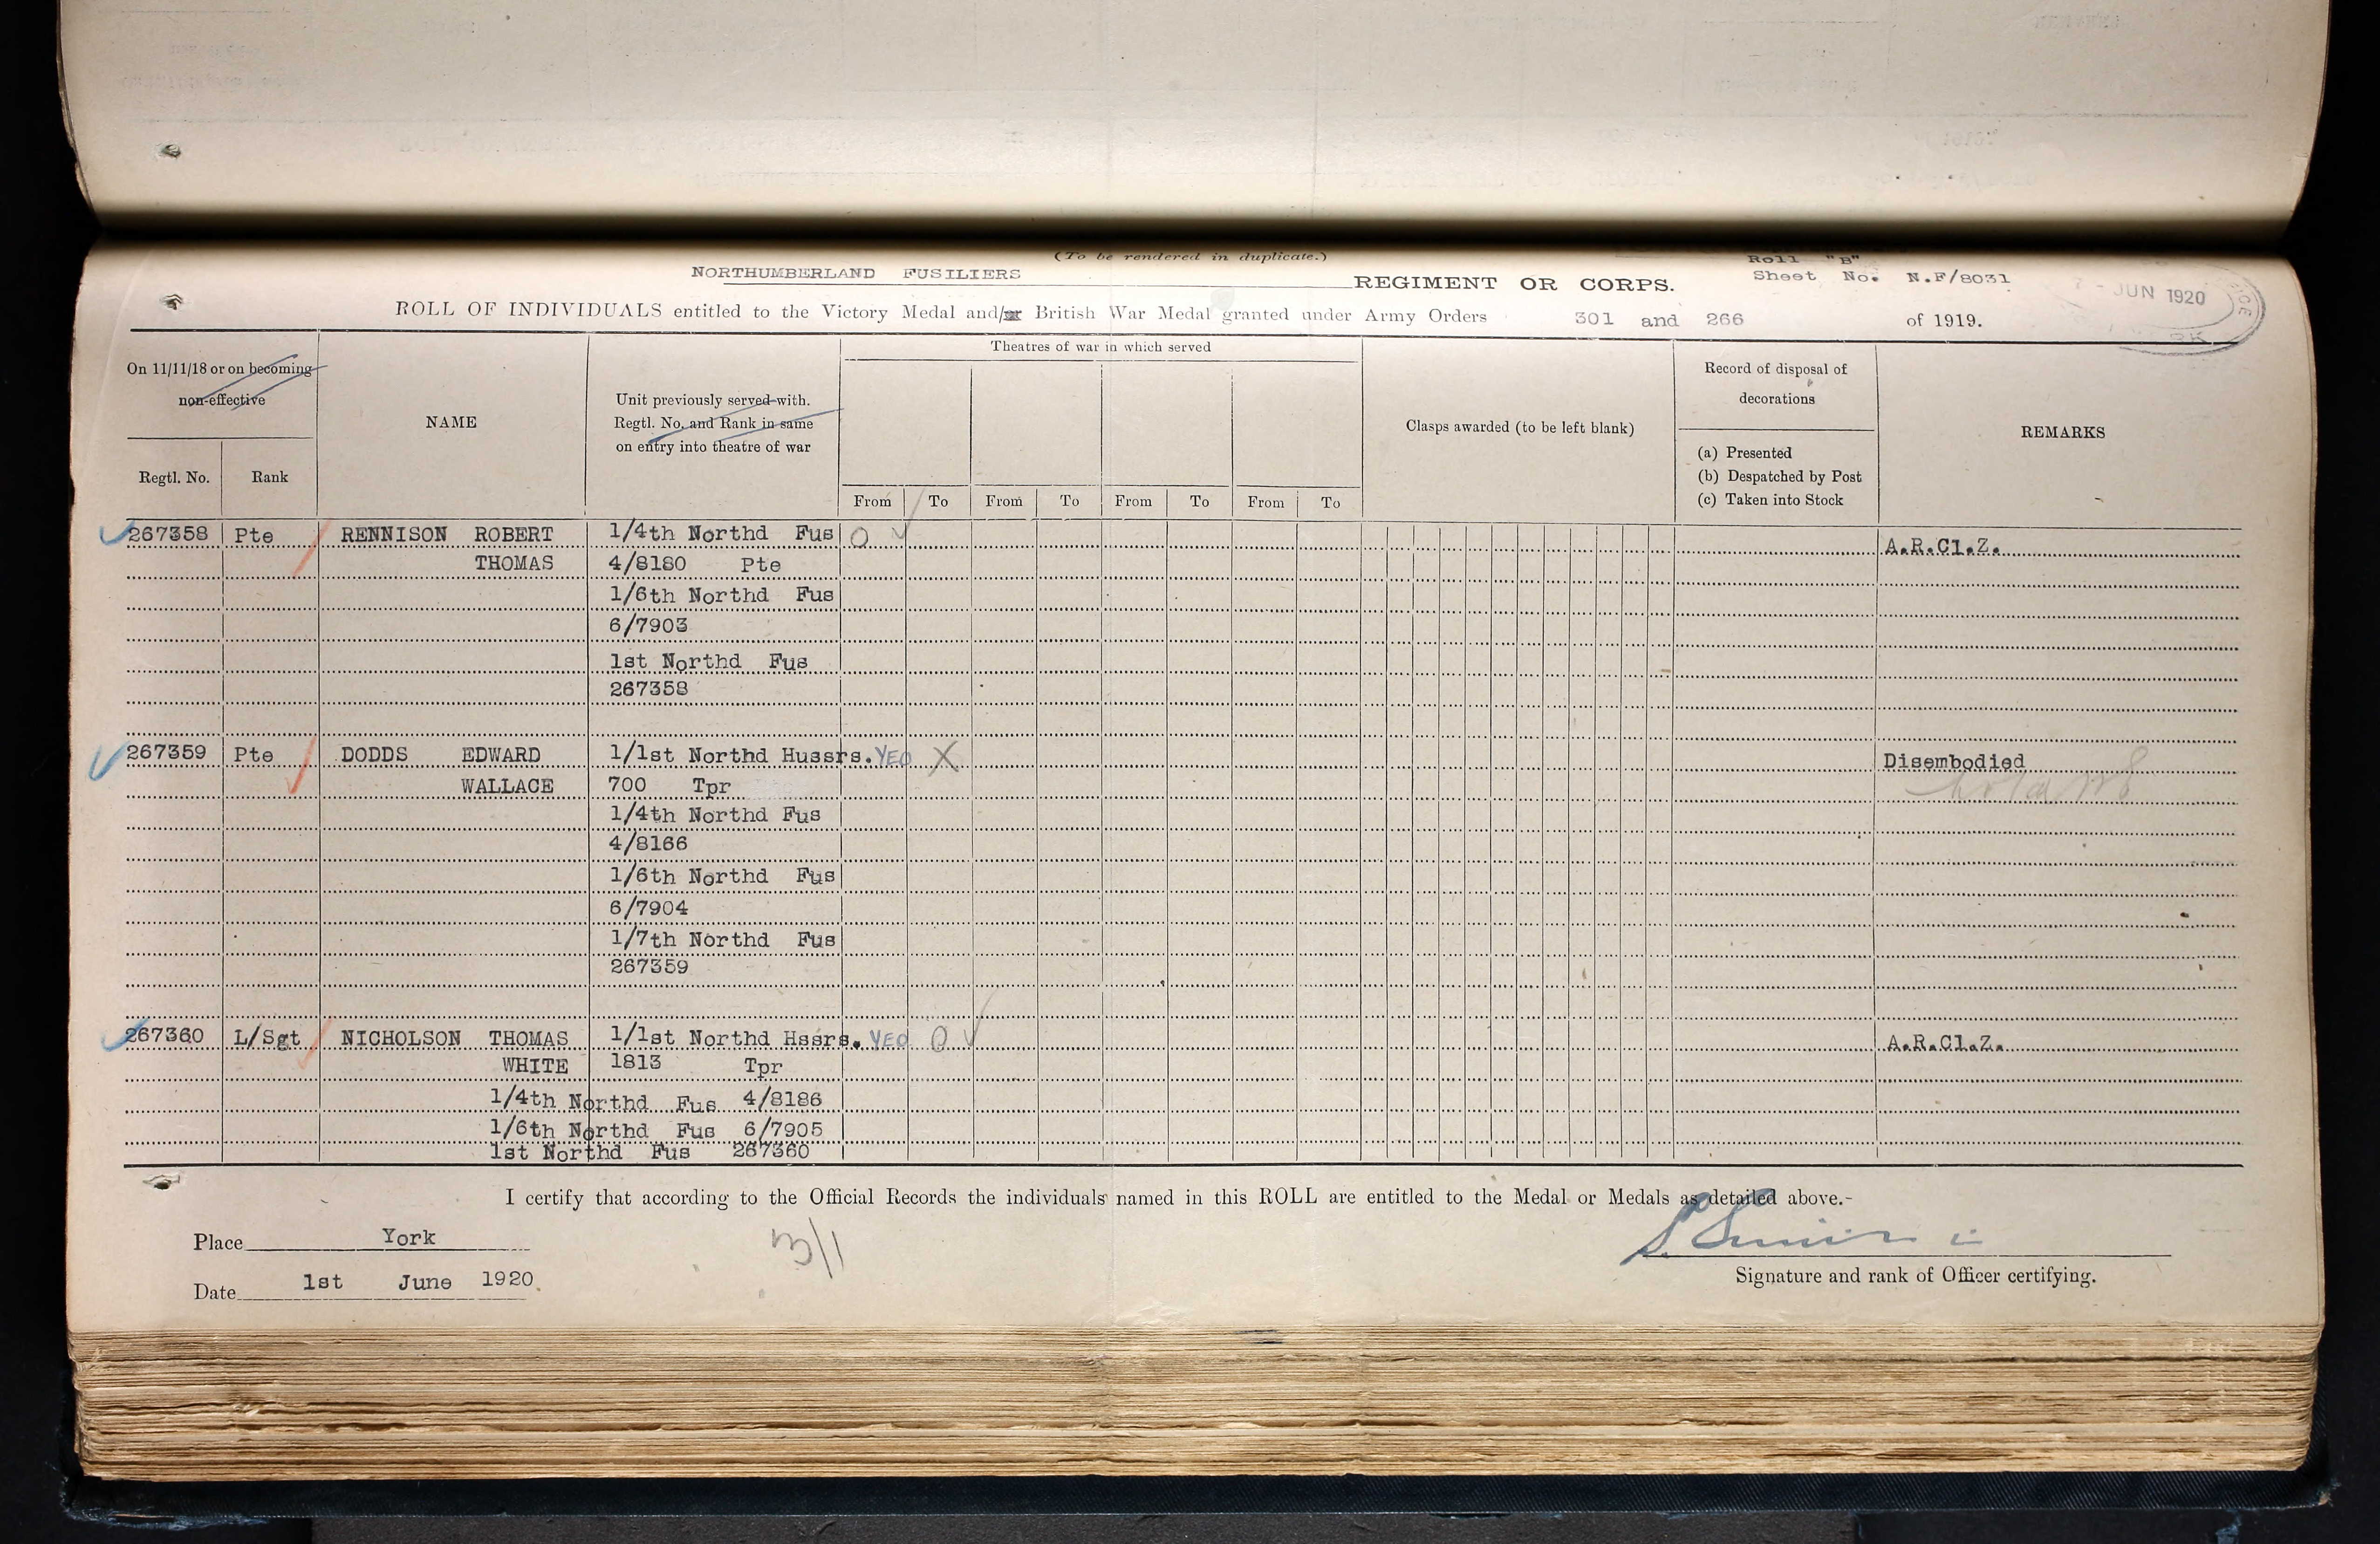 (To be rendered in duplicate.)
Roll "B"
NORTHUMBERLAND FUSILIERS REGIMENT OR CORPS. Sheet No. N.F/8031
JUN 1920
ROLL OF INDIVIDUALS entitled to the Victory Medal and/or British War Medal granted under Army Orders 301 and 266 of 1919.
On 11/11/18 or on becoming
non-effective
Regtl. No. Rank
NAME
Unit previously served with.
Regtl. No. and Rank in same
on entry into theatre of war
Theatres of war in which served
From To From To From To From To
Clasps awarded (to be left blank)
Record of disposal of
decorations
(a) Presented
(b) Despatched by Post
(c) Taken into Stock
REMARKS
267358 Pte RENNISON ROBERT 1/4th Northd Fus O A.R.Cl.Z.
THOMAS 4/8180 Pte
1/6th Northd Fus
6/7903
1st Northd Fus
267358
267359 Pte DODDS EDWARD 1/1st Northd Hussrs. YEO X Disembodied
WALLACE 700 Tpr
1/4th Northd Fus
4/8166
1/6th Northd Fus
6/7904
1/7th Northd Fus
267359
267360 L/Sgt NICHOLSON THOMAS 1/1st Northd Hssrs. YEO O A.R.Cl.Z.
WHITE 1813 Tpr
1/4th Northd Fus 4/8186
1/6th Northd Fus 6/7905
1st Northd Fus 267360
I certify that according to the Official Records the individuals named in this ROLL are entitled to the Medal or Medals as detailed above.-
Place York
Date 1st June 1920.
Signature and rank of Officer certifying.